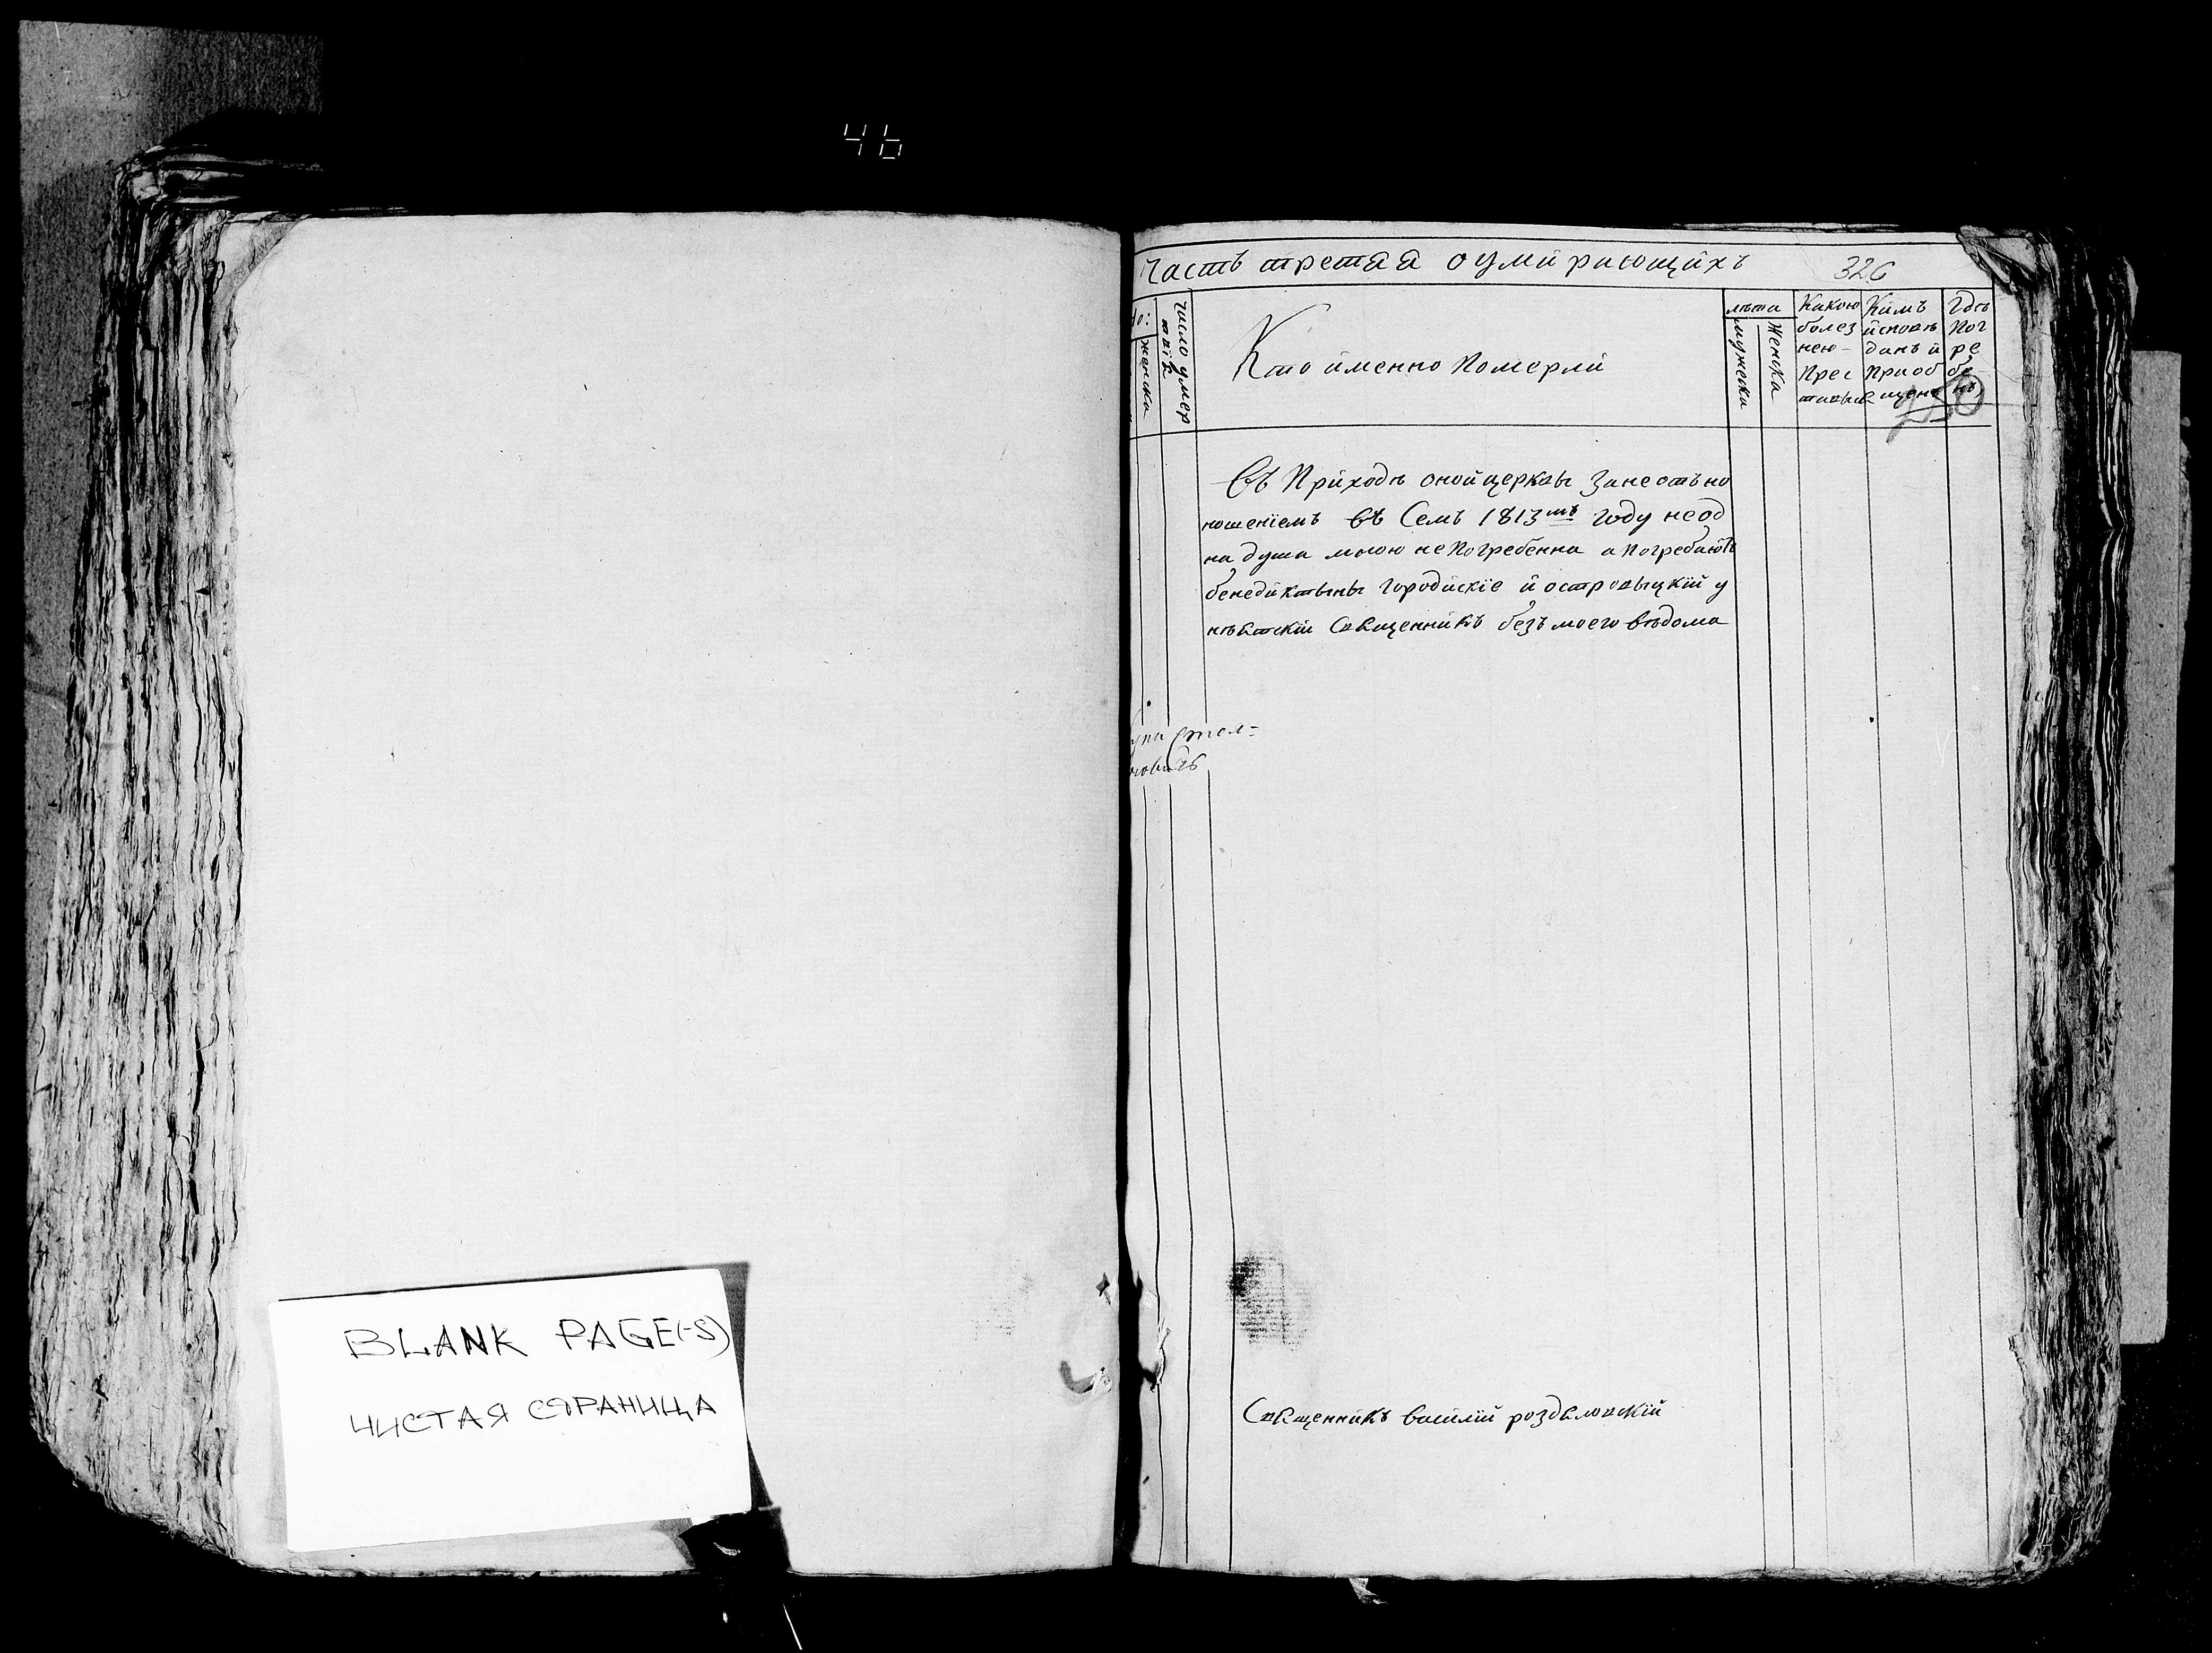 46
BLANK PAGE(-S)
ЧИСТАЯ СТРАНИЦА
Часть третая о умирающихъ
326
Число умер
женска
Кто именно померли
лѣта
мужеска
женска
Какою
болез
нею
прес
Кимъ
исповѣ
данъ и
приоб
щенъ
Гдѣ
пог
ре
бе
нъ
Въ приходѣ оной церквы
ношениемъ въ Семъ 1813мъ году не од
на душа мною не погребенна а погребаютъ
бенедиктыны городискіе и островыцкій у
ніятскій Священникъ безъ моего вѣдома
Священникъ василій роздяловскій